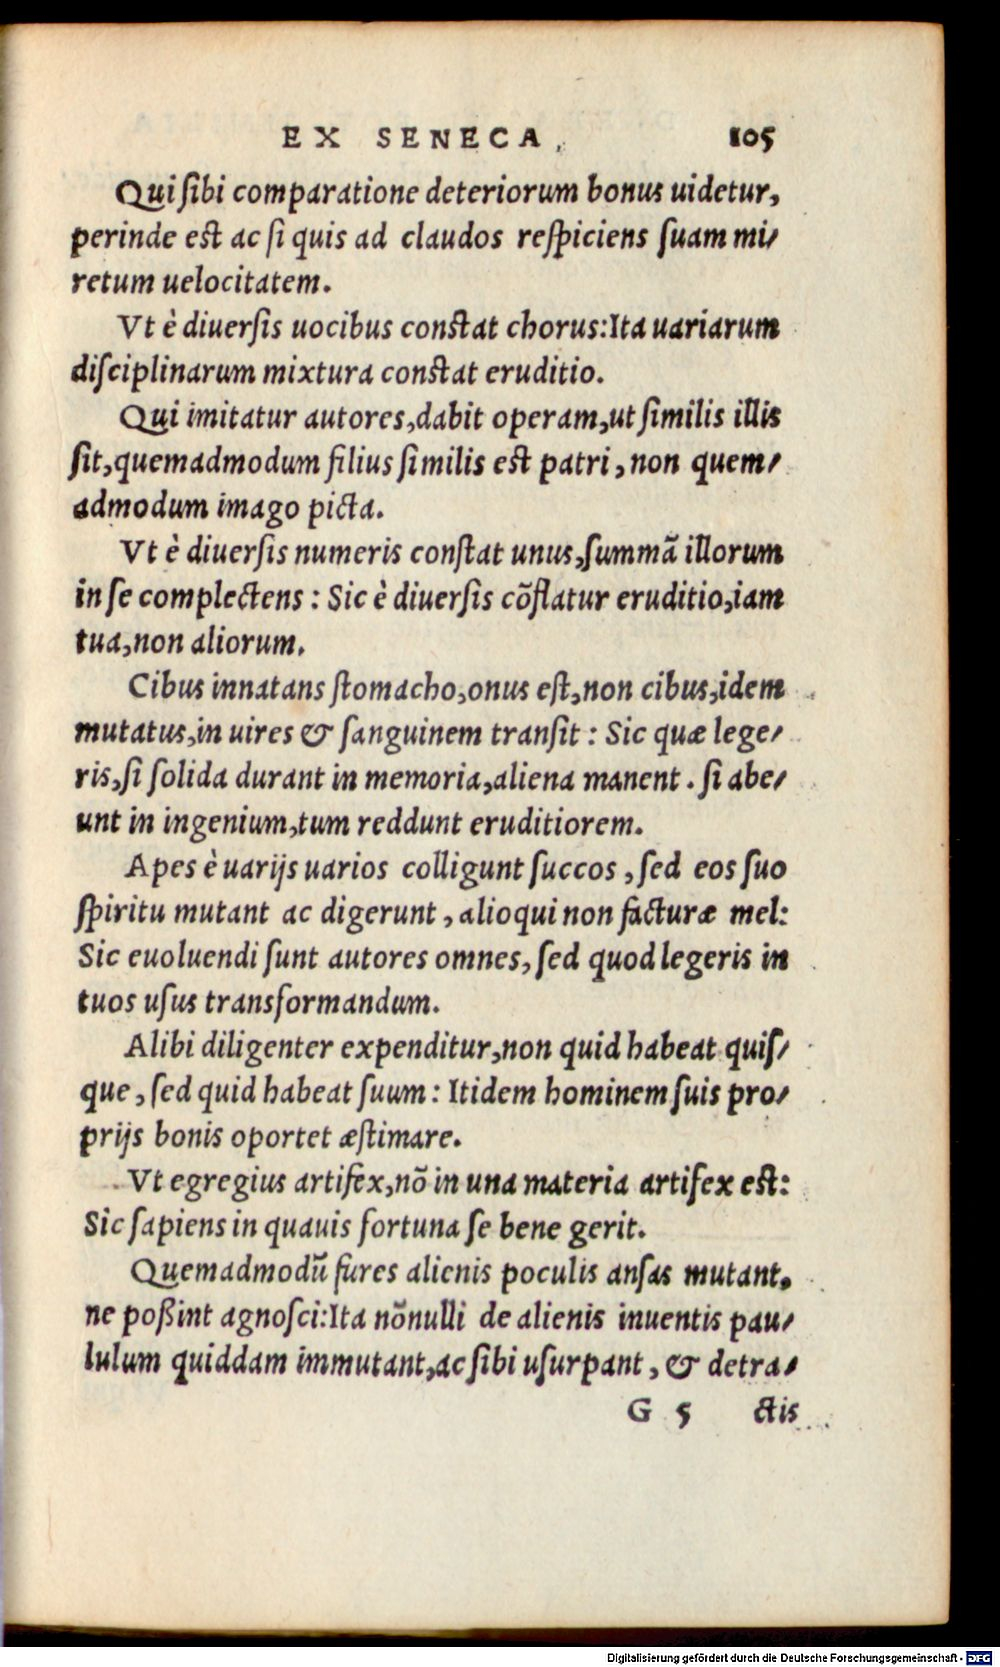 EX SENECA. 105
Qui ſibi comparatione deteriorum bonus uidetur,
perinde est ac ſi quis ad claudos reſpiciens ſuam mi/
retum uelocitatem.
Vt è diuerſis uocibus constat chorus: Ita uariarum
diſciplinarum mixtura constat eruditio.
Qui imitatur autores, dabit operam, ut ſimilis illis
ſit, quemadmodum filius ſimilis est patri, non quem/
admodum imago picta.
Vt è diuerſis numeris conſtat unus, ſummã illorum
in ſe complectens: Sic è diuerſis cõflatur eruditio, iam
tua, non aliorum.
Cibus innatans ſtomacho, onus eſt, non cibus, idem
mutatus, in uires & ſanguinem tranſit: Sic quæ lege/
ris, ſi ſolida durant in memoria, aliena manent. ſi abe/
unt in ingenium, tum reddunt eruditiorem.
Apes è uarijs uarios colligunt ſuccos, ſed eos ſuo
ſpiritu mutant ac digerunt, alioqui non facturæ mel:
Sic euoluendi ſunt autores omnes, ſed quod legeris in
tuos uſus transformandum.
Alibi diligenter expenditur, non quid habeat quiſ/
que, ſed quid habeat ſuum: Itidem hominem ſuis pro/
prijs bonis oportet æſtimare.
Vt egregius artifex, nõ in una materia artifex est:
Sic ſapiens in quauis fortuna ſe bene gerit.
Quemadmodũ fures alienis poculis anſas mutant,
ne poßint agnoſci: Ita nõnulli de alienis inuentis pau/
lulum quiddam immutant, ac ſibi uſurpant, & detra/
G 5 ctis
Digitalisierung gefördert durch die Deutsche Forschungsgemeinschaft - DFG